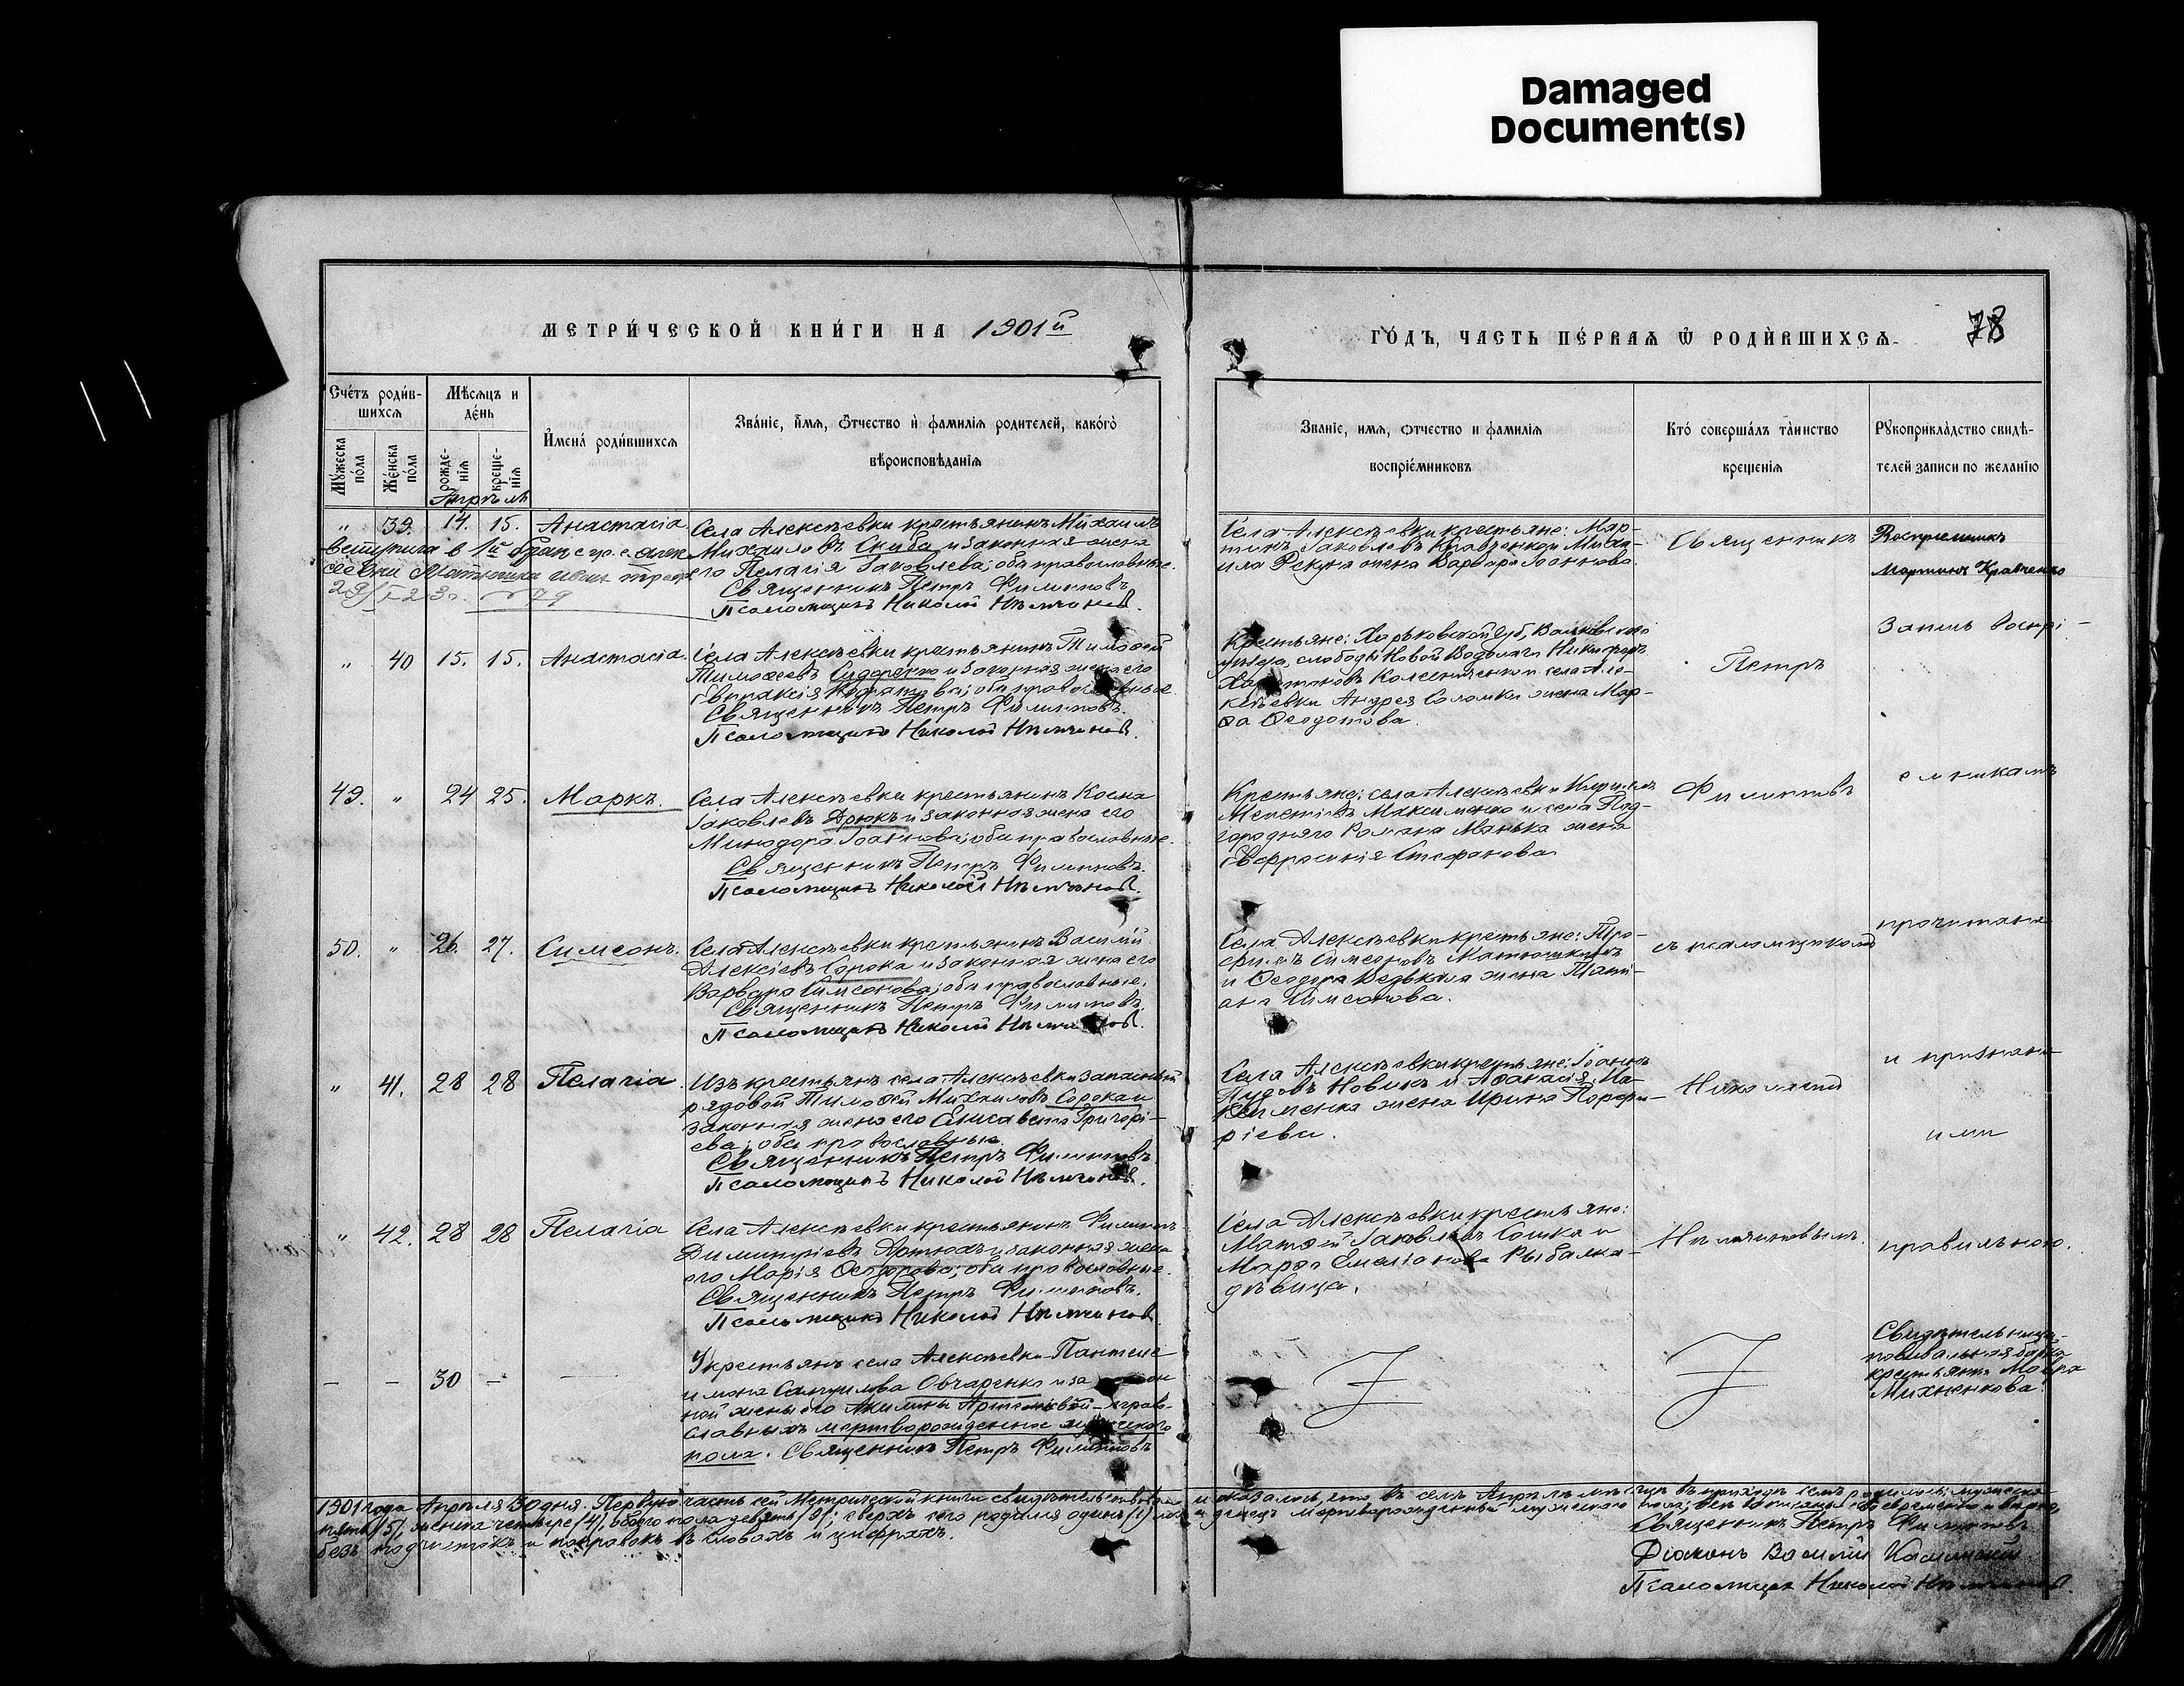 Damaged
Document(s)
МЕТРИ́ЧЕСКОЙ КНИ́ГИ НА 1901й
ГО́ДЪ, ЧАСТЬ ПЕ́РВАѦ Ѿ РОДИ́ВШИХСѦ.
78
Сче́тъ роди́в-
шихсѧ
Мѣсѧцъ и
де́нь
Мꙋжеска по́ла
Же́нска по́ла
рожде-
нїѧ
креще-
нїѧ
И҆мена̀ роди́вшихсѧ
Зва́нїе, и҆́мѧ, ѻ҆́тчество и҆ фамилїѧ родителей, како́гѡ
вѣроисповѣданїѧ
Званїе, имѧ, ѻтчество и фамилїѧ
воспрїе́мниковъ
Кто́ соверша́лъ та́инство
крещенїѧ
Рꙋкоприкла́дство свидѣ-
телей записи по желанїю
Апрѣль
" 39. 14. 15. Анастасія.
Села Алексѣевки крестьянинъ Михаилъ
Михаиловъ Скиба и законная жена
его Пелагія Іаковлева; оба православные.
Священникъ Петръ Филипповъ
Псаломщикъ Николай
Села Алексѣевки крестьяне: Мар-
тинъ Іаковлевъ Кравченко и Миха-
ила Рекуна жена Варвара Іоаннова.
Священникъ
Воспріемникъ
Мартинъ Кравченко
" 40 15. 15. Анастасія.
Села Алексѣевки крестьянинъ Тимоѳей
Тимоѳеевъ Сидоренко и законная жена его
Евпраксія; оба православные
Священникъ Петръ Филипповъ.
Псаломщикъ Николай
Крестьяне: Харьковской губ, Валковскаго
уѣзда, слободы Новой Водолаги Никифоръ
Колесниченко и села Але-
ксѣевки Андрея Соломки жена Мар-
ѳа Ѳеодотова.
Петръ
Запись воспрі-
49. " 24 25. Маркъ.
Села Алексѣевки крестьянинъ Косма
Іаковлевъ Дрюкъ и законная жена его
Минодора Іоаннова; оба православные.
Священникъ Петръ Филипповъ.
Псаломщикъ Николай
Крестьяне: села Алексѣевки
Максименко и села Под-
городняго Романа Манька жена
Евфросинія Стефанова.
Филипповъ
емникамъ
50. " 26. 27. Симеонъ.
Села Алексѣевки крестьянинъ Василій
Алексіевъ Сорока и законная жена его
Варвара Симеонова; оба православные.
Священникъ Петръ Филипповъ
Псаломщикъ Николай
Села Алексѣевки крестьяне: Тро-
фимъ Симеоновъ Матюшкинъ
и Ѳеодора жена Тати-
ана Симеонова.
съ псаломщикомъ
прочитана
" 41. 28 28 Пелагія.
Изъ крестьянъ села Алексѣевки запасный
рядовой Тимоѳей Михаиловъ Сорока и
законная жена его Елисавета Григорі-
ева; оба православные.
Священникъ Петръ Филипповъ
Псаломщикъ Николай
Села Алексѣевки крестьяне: Іоаннъ
Новикъ и Аѳанасія
жена Ирина Порфи-
ріева.
Николаемъ
и признана
ими
" 42. 28 28 Пелагія
Села Алексѣевки крестьянинъ Филиппъ
Димитріевъ Артюхъ и законная жена
его Марія Ѳеодорова; оба православные.
Священникъ Петръ Филипповъ.
Псаломщикъ Николай
Села Алексѣевки крестьяне:
Матѳей Іаковлевъ Сошка и
Марѳа Емеліанова Рыбалка
дѣвица.
правильною.
– – 30 – –
У крестьянъ села Алексѣевки Пантеле-
имона Овчаренка и закон
ной жены его Акилины – право-
славныхъ мертворожденное мужескаго
пола. Священникъ Петръ Филипповъ
Свидѣтельница
повивальная бабка
крестьянка Мавра
Михненкова.
1901 года Апрѣля 30 дня. Первую часть сей Метрической книги свидѣтельствовали и оказалось, что въ семъ Апрѣлѣ мѣсяцѣ въ приходѣ семъ родилось: мужеска
пять /5/, женска четыре /4/, обоего пола девять /9/; сверхъ сего родился одинъ /1/ младенецъ мертворожденный мужескаго пола; всѣ записаны своевременно и вѣрно,
безъ подчистокъ и поправокъ въ словахъ и цифрахъ.
Священникъ Петръ Филипповъ
Діаконъ Василій
Псаломщикъ Николай